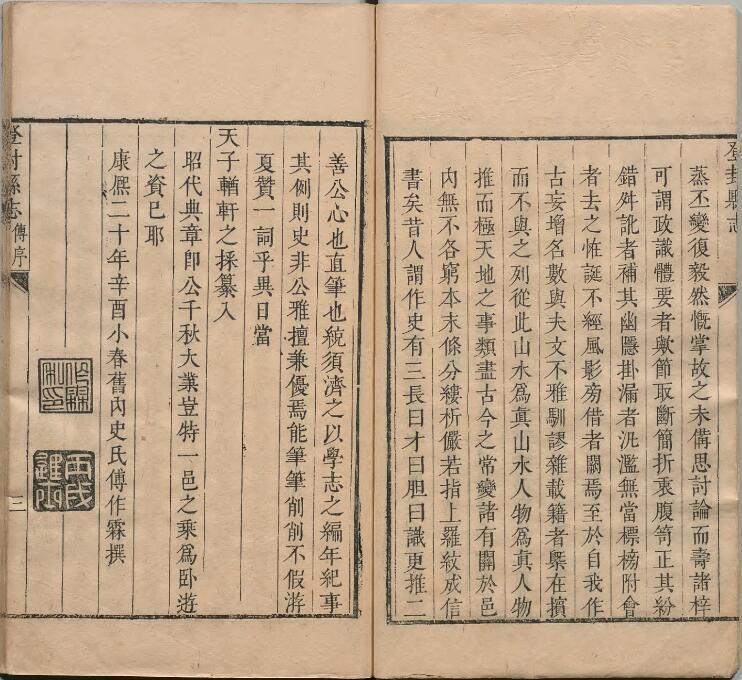 登封縣志
蒸丕變復毅然慨掌故之未備思討論而壽諸梓
可謂政識體要者歟節取斷簡折衷腹笥正其紛
錯舛訛者補其幽隱掛漏者汎濫無當標榜附會
者去之恠誕不經風影旁借者闕焉至於自我作
古妄增名數與夫文不雅馴謬雜載籍者槩在擯
而不與之列從此山水爲真山水人物爲真人物
推而極天地之事類盡古今之常變諸有關於邑
內無不各窮本末條分縷析儼若指上羅紋成信
書矣昔人謂作史有三長曰才曰胆曰識更推二
善公心也直筆也統須濟之以學志之編年紀事
其例則史非公雅擅兼優焉能筆筆削削不假游
夏贊一詞乎異日當
天子輶軒之採纂入
昭代典章卽公千秋大業豈特一邑之乘爲臥遊
之資已耶
康熈二十年辛酉小春舊內史氏傅作霖撰
登封縣志
傅序
三